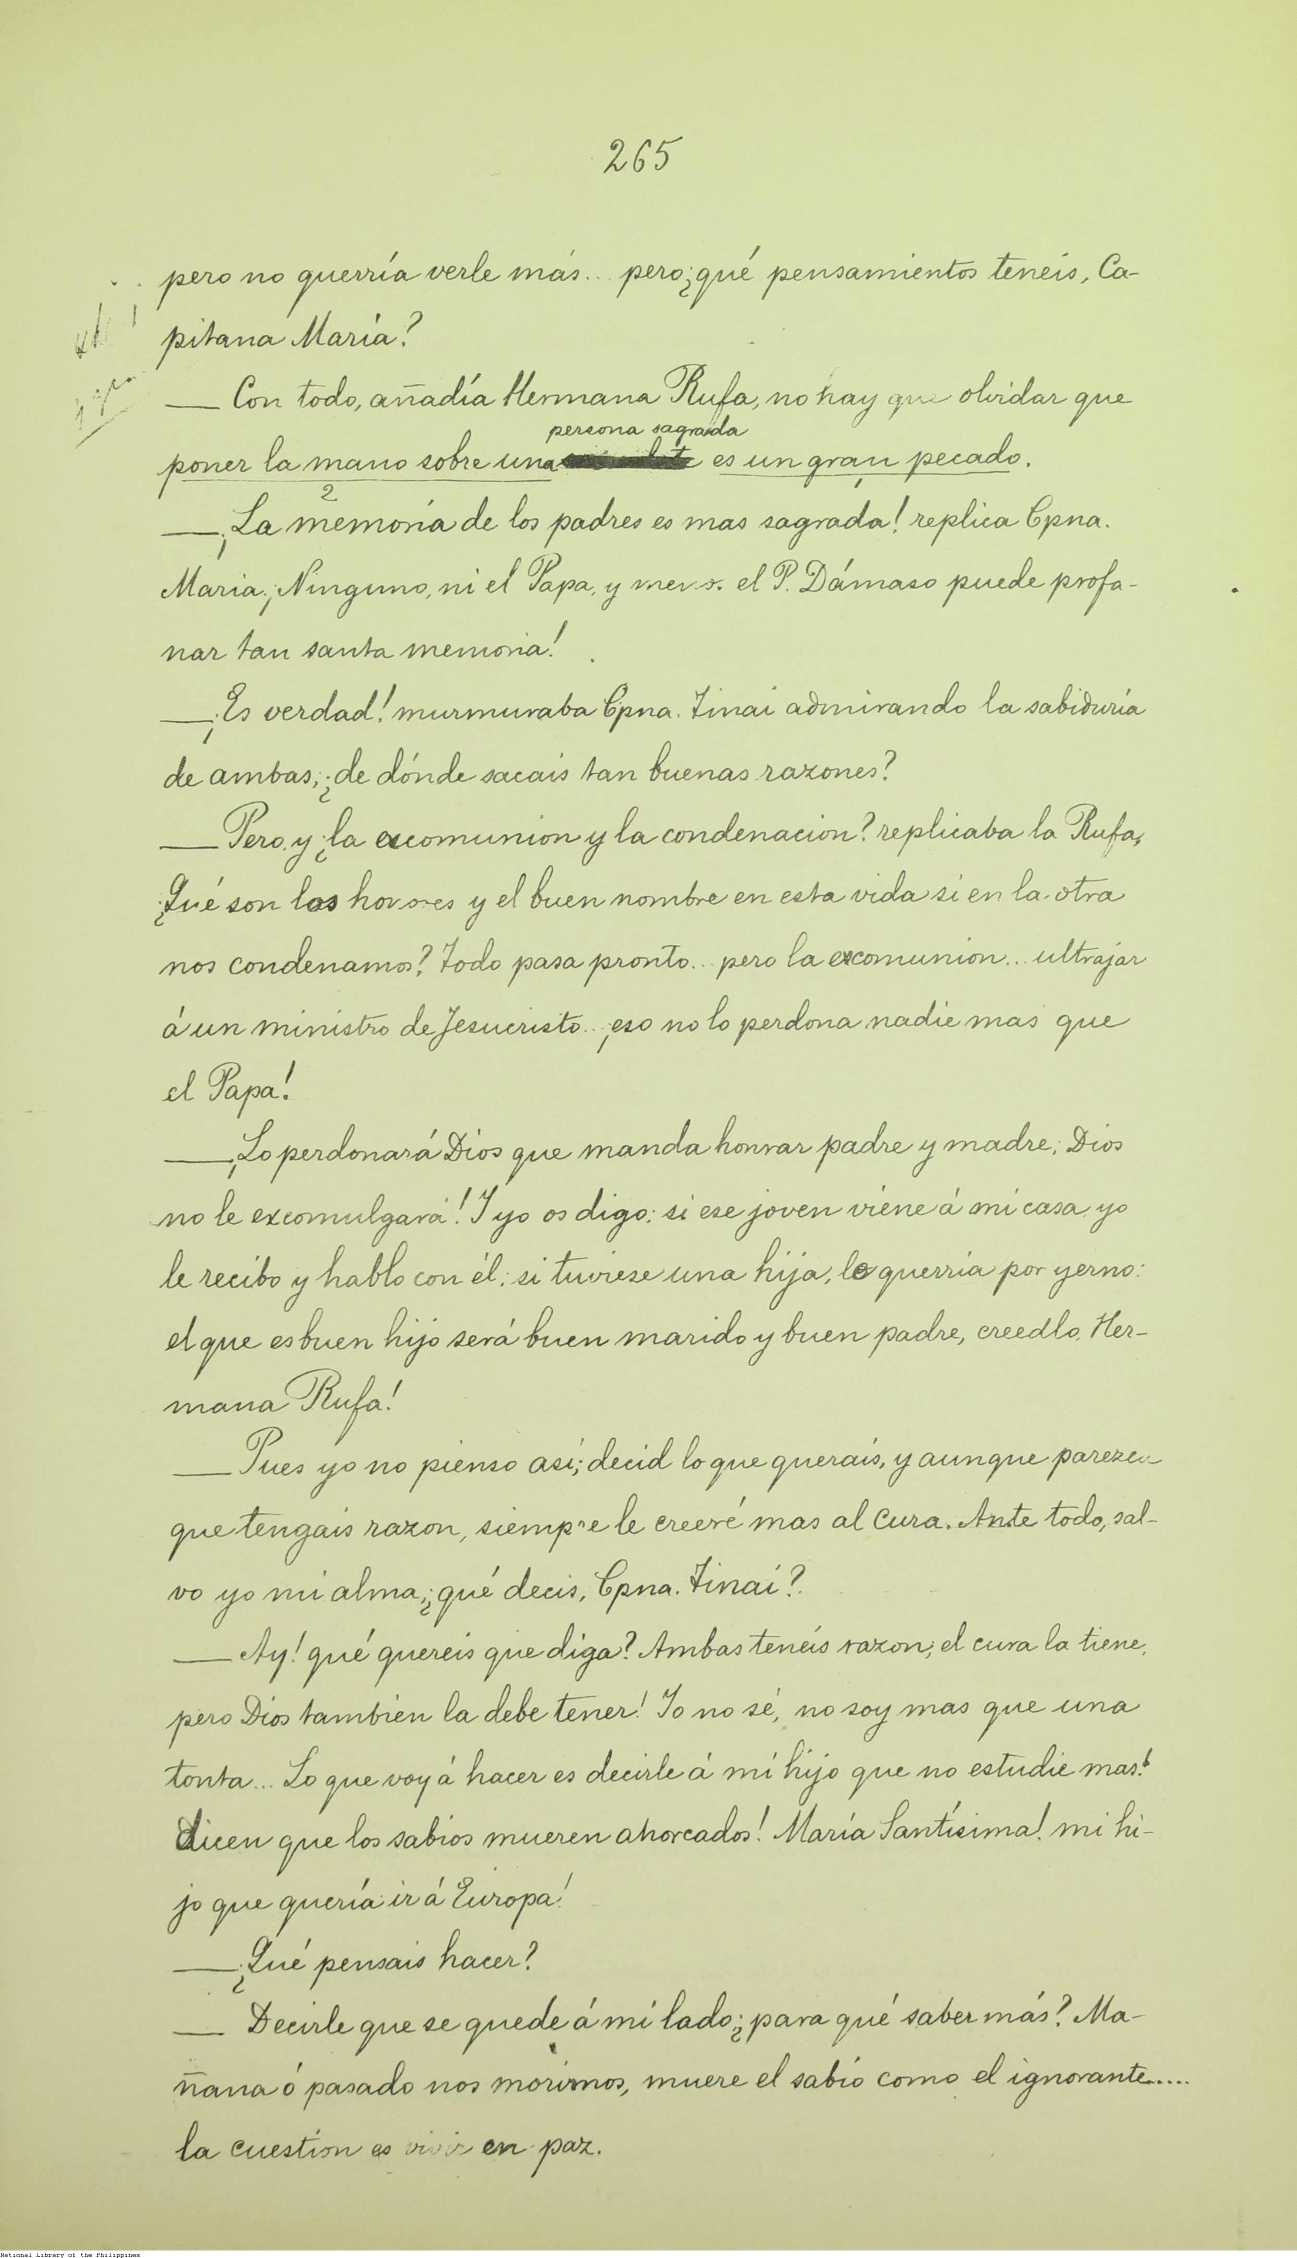 265
pero no querría verle más... pero ¿qué pensamientos teneis, Ca-
pitana María?
— Con todo, añadía Hermana Rufa, no hay que olvidar que
persona sagrada
poner la mano sobre una es un gran pecado.
2
— ¡La memoria de los padres es mas sagrada! replica Cpna.
Maria. ¡Ninguno, ni el Papa, y menos el P. Dámaso puede profa-
nar tan santa memoria!
— ¡Es verdad! murmuraba Cpna. Tinai admirando la sabiduría
de ambas, ¿de dónde sacais tan buenas razones?
— Pero y ¿la excomunion y la condenacion? replicaba la Rufa,
¿Qué son los honores y el buen nombre en esta vida si en la otra
nos condenamos? Todo pasa pronto... pero la excomunion... ultrajar
á un ministro de Jesucristo... ¡eso no lo perdona nadie mas que
el Papa!
— ¡Lo perdonará Dios que manda honrar padre y madre; Dios
no le excomulgará! Y yo os digo: si ese joven viene á mi casa yo
le recibo y hablo con él; si tuviese una hija, le querria por yerno:
el que es buen hijo será buen marido y buen padre, creedlo, Her-
mana Rufa!
— Pues yo no pienso así; decid lo que querais, y aunque parezca
que tengais razon, siempre le creeré mas al cura. Ante todo, sal-
vo yo mi alma, ¿qué decis, Cpna. Tinai?
— Ay! qué quereis que diga? Ambas teneis razon; el cura la tiene,
pero Dios tambien la debe tener! Yo no sé, no soy mas que una
tonta... Lo que voy á hacer es decirle á mi hijo que no estudie mas!
dicen que los sabios mueren ahorcados! María Santísima! mi hi-
jo que quería ir á Europa!
— ¿Qué pensais hacer?
— Decirle que se quede á mi lado; ¿para qué saber más? Ma-
ñana ó pasado nos morimos, muere el sabio como el ignorante.....
la cuestion es vivir en paz.
National Library of the Philippines